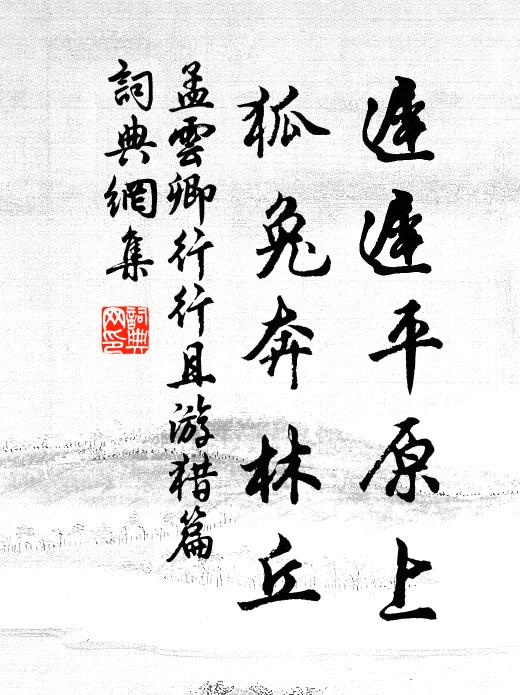 遲遲平原上
狐兔奔林丘
孟雲卿行行且游猎篇
詞典網集
詞典网印